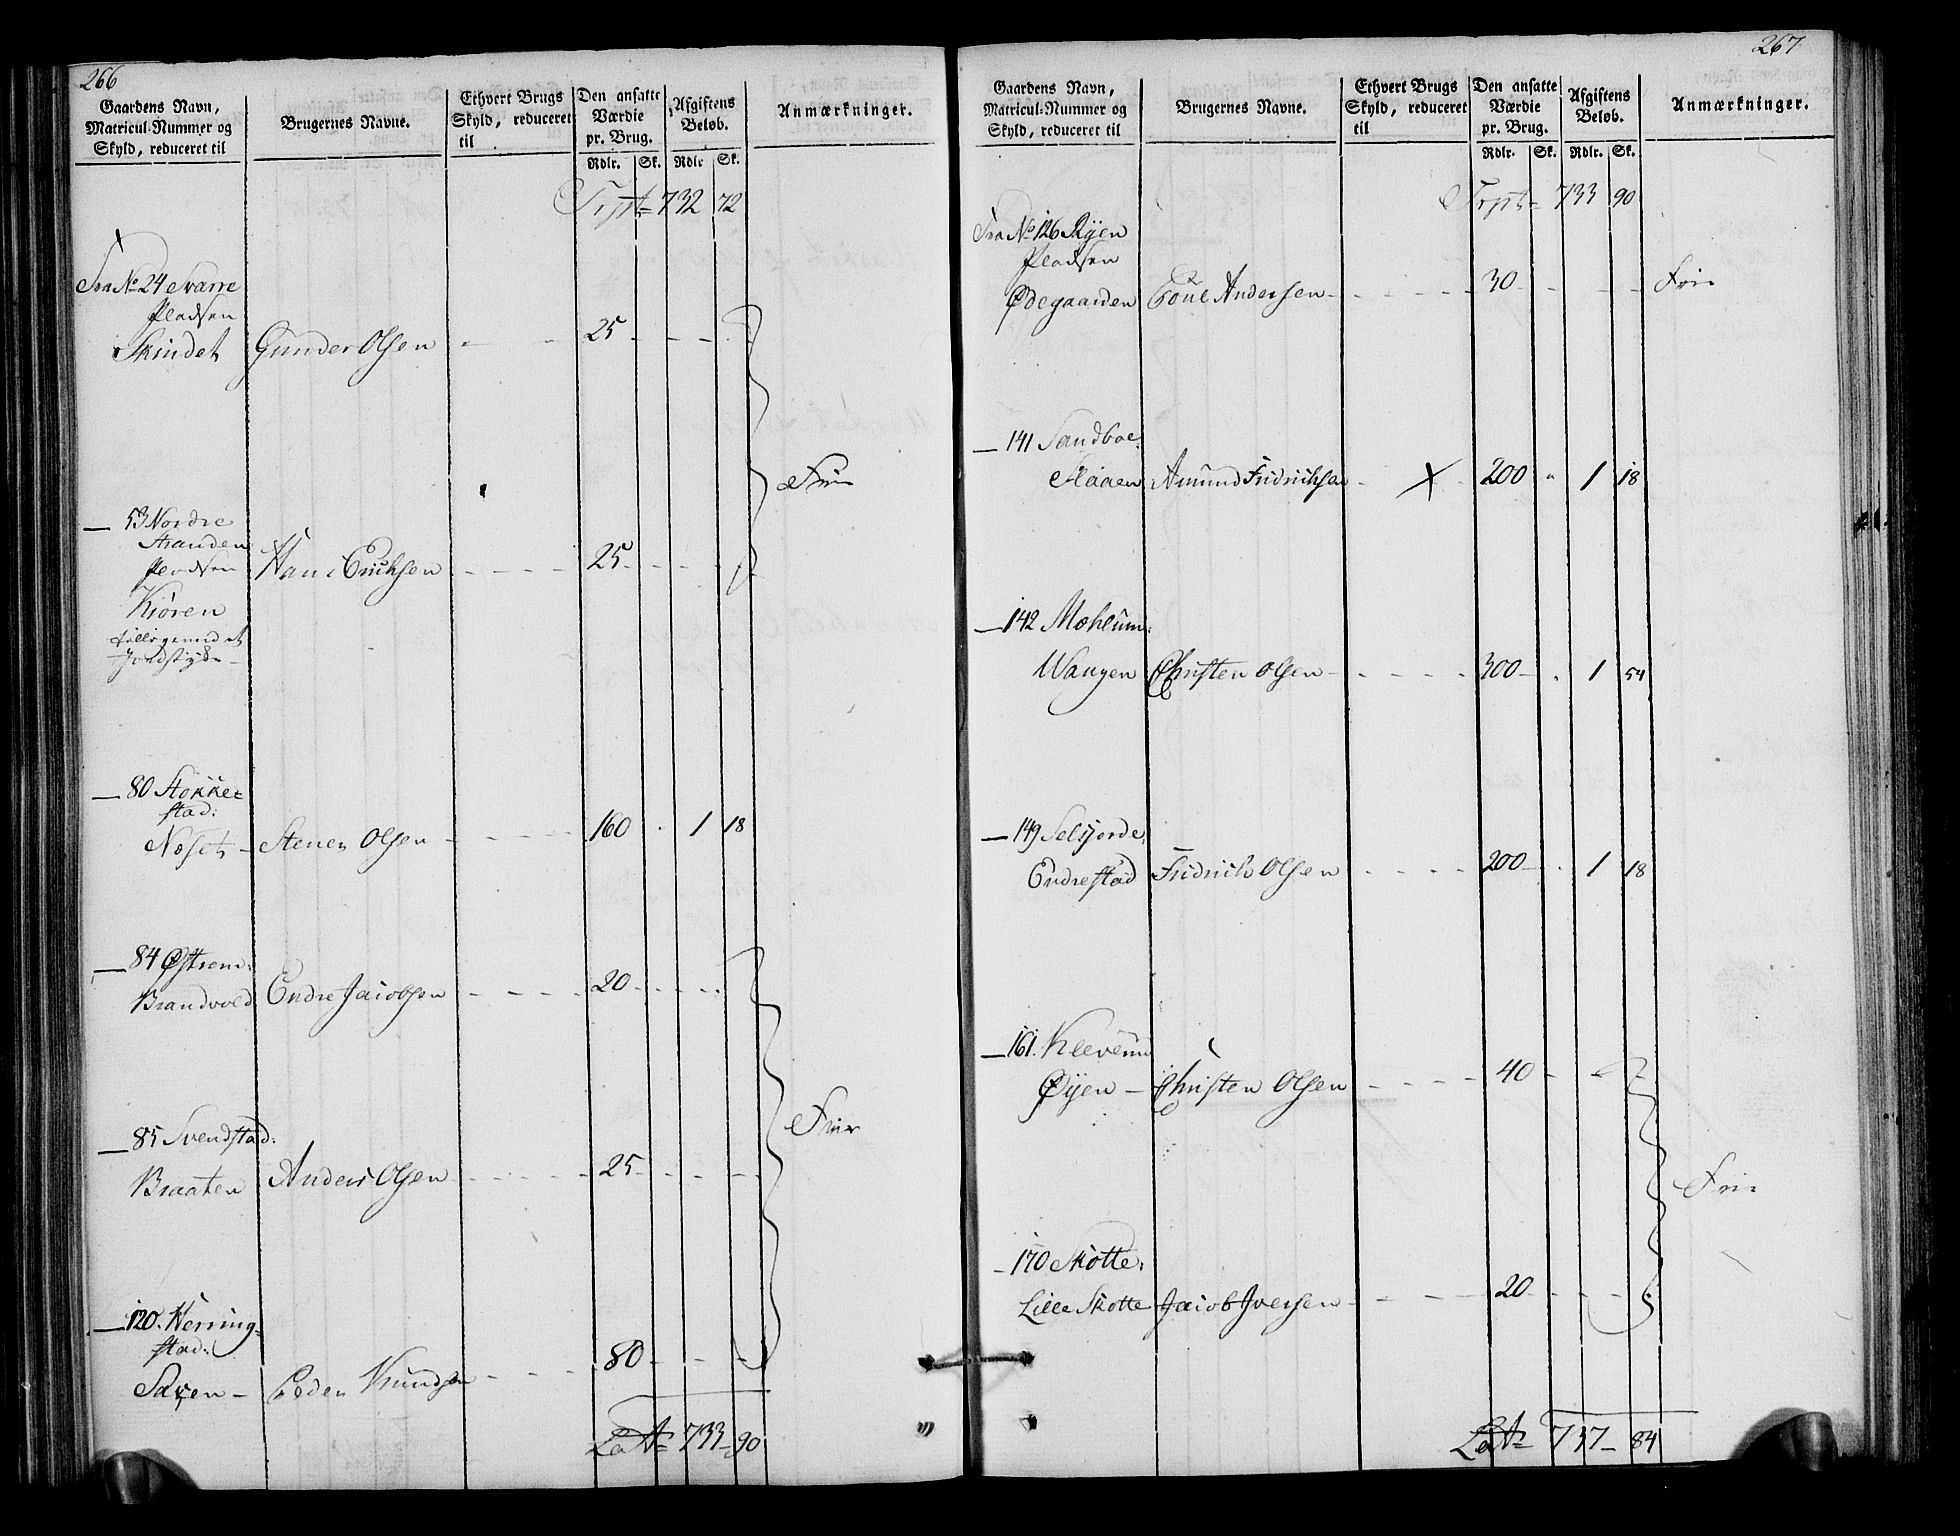 266
Gaardens Navn,
Matricul-Nummer og
Skyld, reduceret til
Brugernes Navne.
Ethvert Brugs
Skyld, reduceret
til
Den ansatte
Værdie
pr. Brug.
Rdlr. Sk.
Afgiftens
Beløb.
Rdlr Sk.
Anmærkninger.
Trpt 732 72
Fra No 24 Svarre
Pladsen
Skindet Gunder Olsen 25
Frie
— 53 Nordre
Stranden
Pladsen Hans Erichsen 25
Kiøren
— 80 Stokke-
stad:
Næset — Stener Olsen 160 1 18
— 84 Østrem:
Brandvold Endre Jacobsen 20
Frie
— 85 Svendstad:
Braaten Anders Olsen 25
— 120. Herring-
stad:
Knudsen 80
Lat 733 90
267
Gaardens Navn,
Matricul-Nummer og
Skyld, reduceret til
Brugernes Navne.
Ethvert Brugs
Skyld, reduceret
til
Den ansatte
Værdie
pr. Brug.
Rdlr. Sk.
Afgiftens
Beløb.
Rdlr. Sk.
Anmærkninger.
Trpt 733 90
Fra No 126 Ryen
Pladsen
Ødegaarden Poul Andersen 30 Frie
— 141 Sandboe:
Amund Fridrichsen X 200 1 18
— 142 Mæhlum:
Wangen Christen Olsen 300 1 54
— 149 Selsjorde:
Endrestad Fridrich Olsen 200 1 18
— 161. Kleverud
Øyen — Christen Olsen 40
Frie
— 170 Skotte:
Lille Skotte Jacob Iversen 20
Lat 737 84